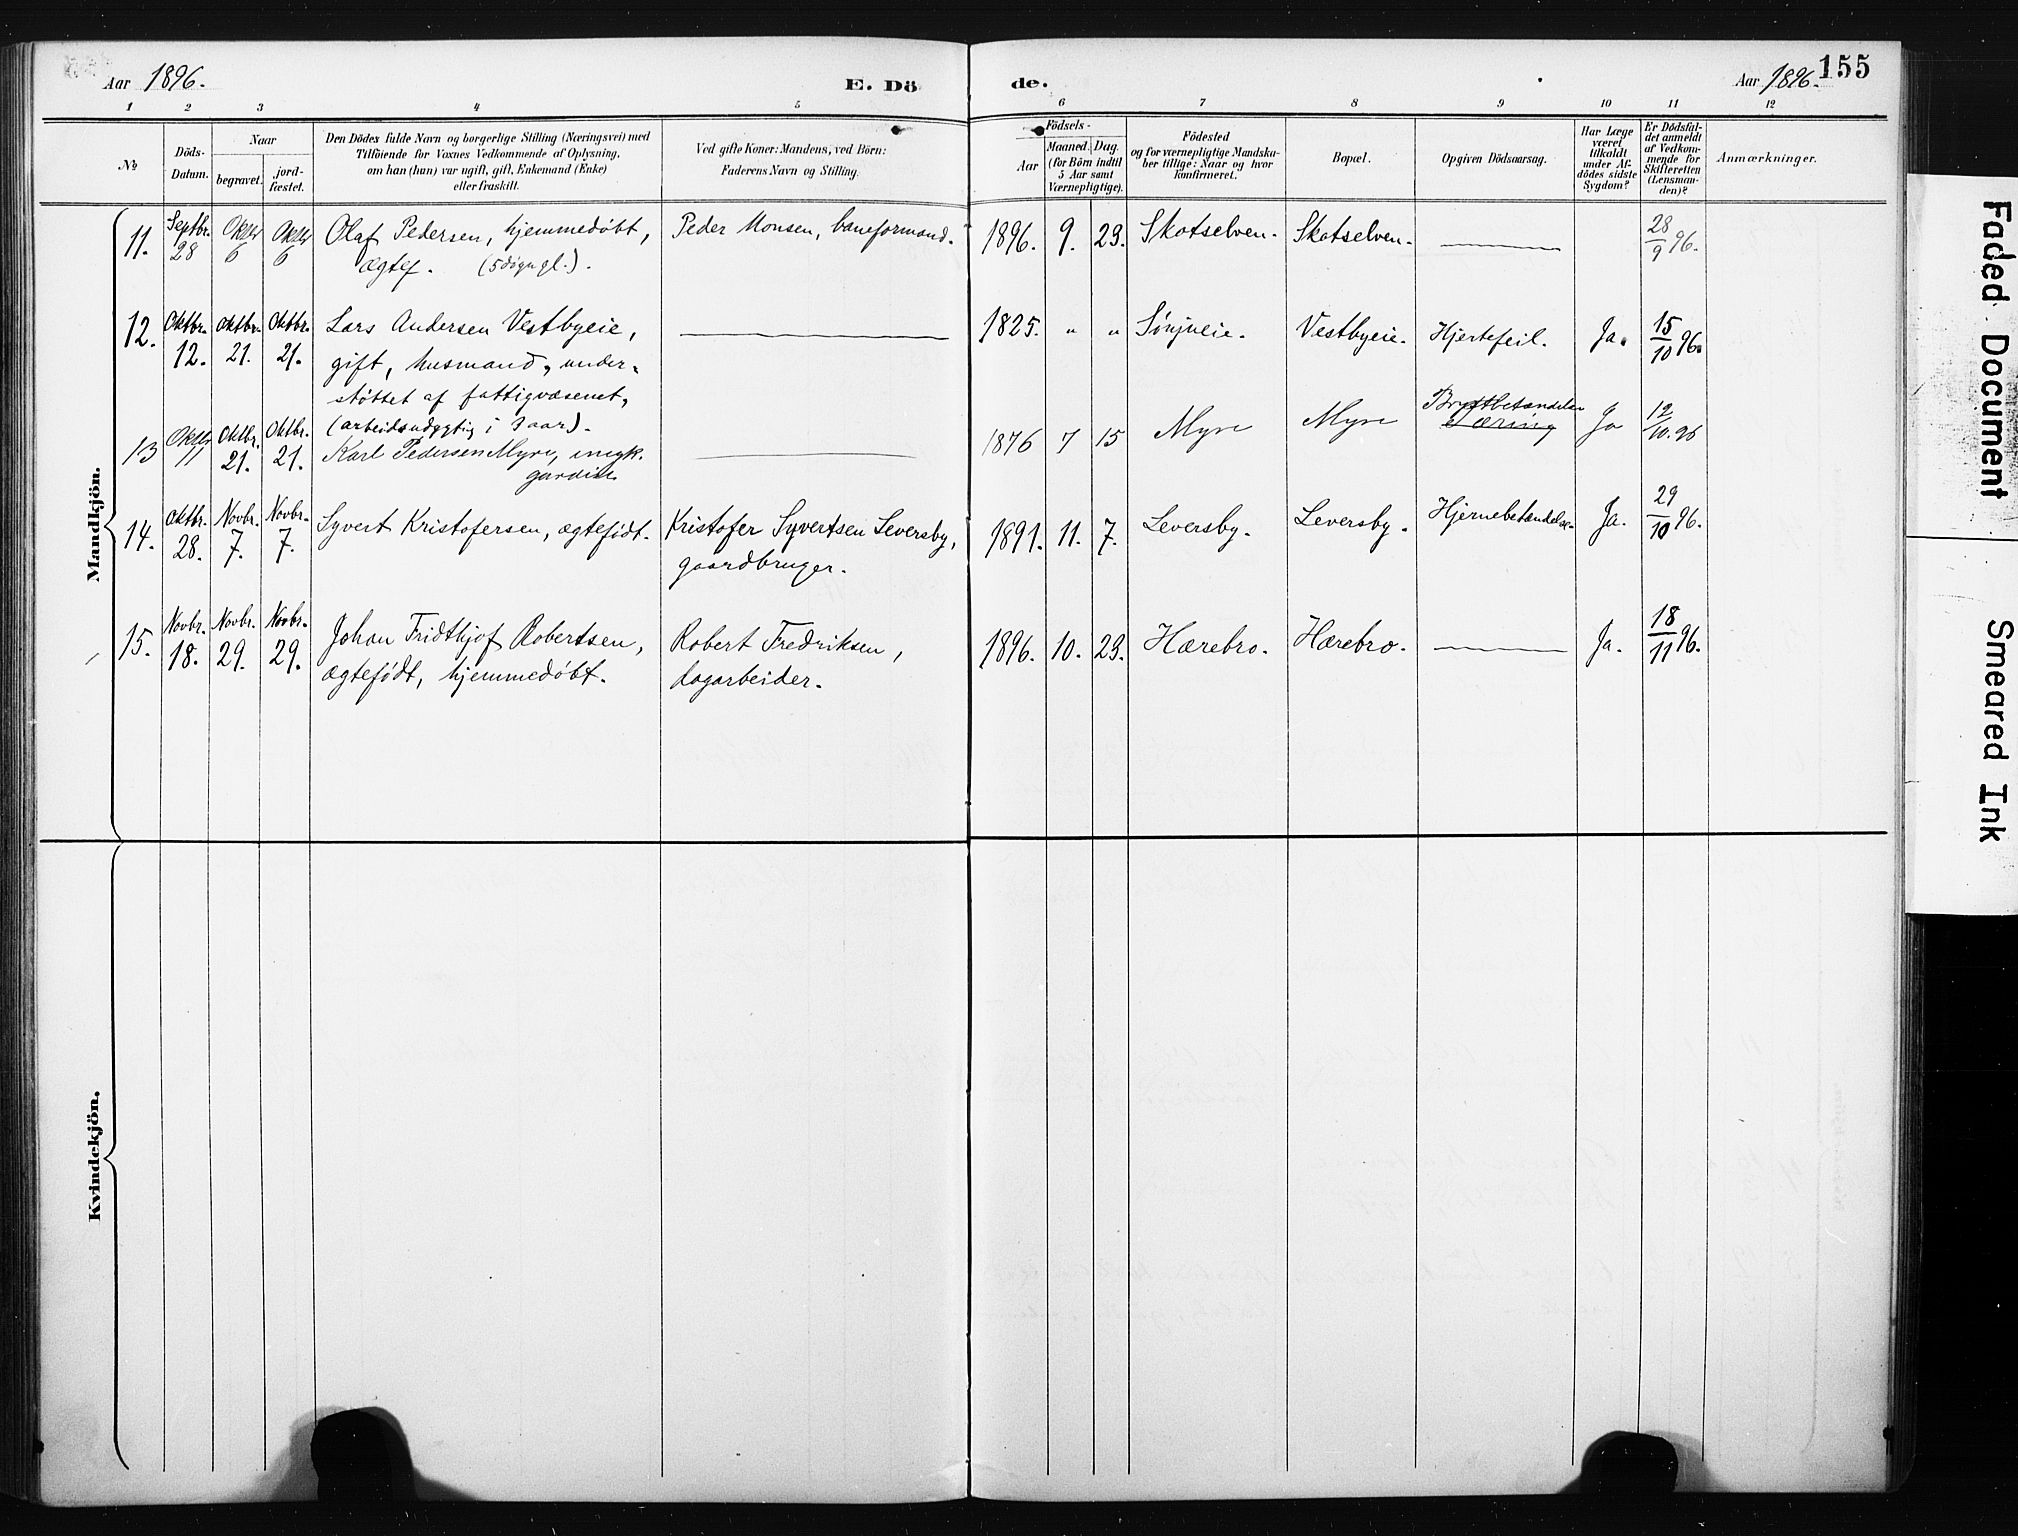 Aar 1896.
E. Dö
de.
Aar 1896.
155
1 2 3 4 5 6 7 8 9 10 11 12
№
Döds-
Datum.
Naar
begravet.
jord-
fæstet.
Den Dödes fulde Navn og borgerlige Stilling (Næringsvei) med
Tilföiende for Voxnes Vedkommende af Oplysning,
om han (hun) var ugift, gift, Enkemand (Enke)
eller fraskilt.
Ved gifte Koner: Mandens, ved Börn:
Faderens Navn og Stilling.
Födsels-
Aar
Maaned. Dag.
(for Börn indtil
5 Aar samt
Værnepligtige).
Födested
og for værnepligtige Mandska-
ber tillige: Naar og hvor
konfirmeret.
Bopæl.
Opgiven Dödsaarsag.
Har Læge
været
tilkaldt
under Af-
dödes sidste
Sygdom?
Er Dödsfal-
det anmeldt
af Vedkom-
mende for
Skifteretten
(Lensman-
den)?
Anmærkninger.
Mandkjön.
11. Septbr. 28 Oktbr 6 Oktbr 6 Olaf Pedersen, hjemmedøbt, Peder Monsen, baneformand. 1896. 9. 23. Skotselven. Skotselven. 28/9 96.
ægtef. (5 døgn gl.).
12. Oktbr. 12. Oktbr. 21. Oktbr. 21. Lars Andersen Vestbyeie, 1825. " " Vestbyeie. Hjertefeil. Ja. 15/10 96.
gift, husmand, under-
støttet af fattigvæsenet,
(arbeidsudygtig i 3 aar).
13 Oktbr 11 Oktbr. 21. Oktbr. 21. Karl Pedersen Myre, 1876 7 15 Myre Myre Brystbetændelse Tæring Ja 12/10. 96
14. Oktbr. 28. Novbr. 7. Novbr. 7. Syvert Kristofersen, ægtefødt. Kristofer Syvertsen Leversby, 1891. 11. 7. Leversby. Leversby. Hjernebetændelse. Ja. 29/10 96.
gaardbruger.
15. Novbr. 18. Novbr. 29. Novbr. 29. Johan Fridthjof Robertsen, Robert Fredriksen, 1896. 10. 23. Hærebro. Hærebro. Ja. 18/11 96.
ægtefødt, hjemmedøbt. dagarbeider.
Kvindekjön.
Faded Document
Smeared Ink